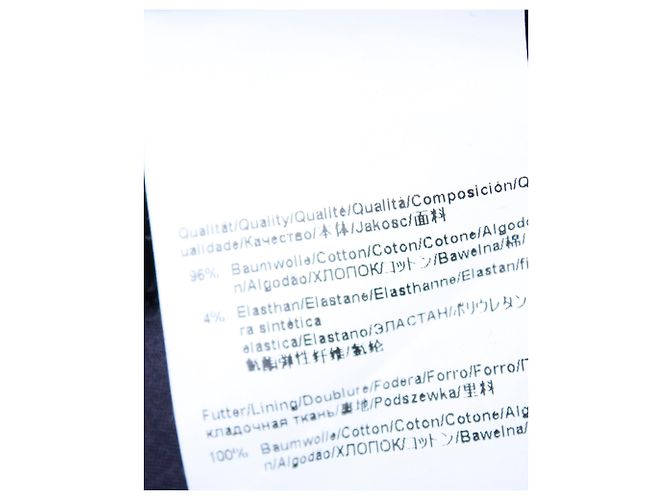 Qualität/Quality/Qualité/Qualità/Composición/Q
ualidade/Качество/本体/Jakosc/面料
96% Baumwolle/Cotton/Coton/Cotone/Algodo
n/Algodão/ХЛОПОК/コットン/Bawelna/棉/
4% Elasthan/Elastane/Elasthanne/Elastan/fi
ra sintética
elastica/Elastano/ЭЛАСТАН/ポリウレタン
氨酯弹性纤维/氨纶
Futter/Lining/Doublure/Fodera/Forro/Forro/П
кладочная ткань/裏地/Podszewka/里料
100% Baumwolle/Cotton/Coton/Cotone/Alg
n/Algodão/ХЛОПОК/コットン/Bawelna/